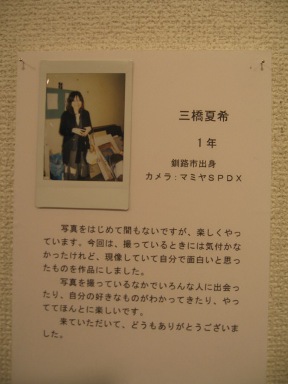 三橋夏希
１年
釧路市出身
カメラ：マミヤＳＰＤＸ
写真をはじめて間もないですが、楽しくやっ
ています。今回は、撮っているときには気付かな
かったけれど、現像していて自分で面白いと思っ
たものを作品にしました。
写真を撮っているなかでいろんな人に出会っ
たり、自分の好きなものがわかってきたり、やっ
ててほんとに楽しいです。
来ていただいて、どうもありがとうございま
した。